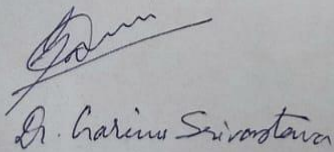 Dr. Garima Srivastava